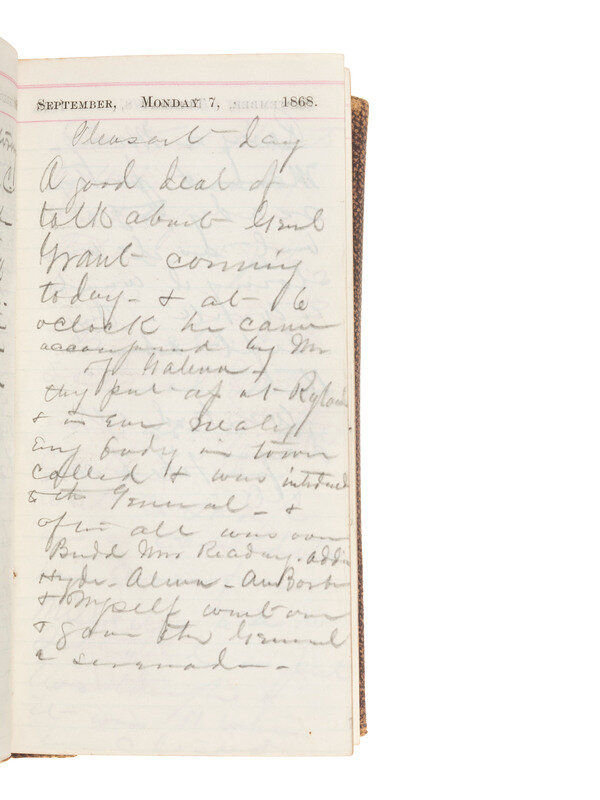 September, Monday 7, 1868.
Pleasant day
A good deal of
talk about Genl
Grant coming
today - & at 6
oclock he came
accompanied by Mr
of Galena -
thy put up at
& in Eve nealy
evry body in town
called & was introduced
to the General - &
after all was over
Budd Mrs Readay. Addie
Hyde - Alma -
& Myself went over
& gave the General
a serenade -